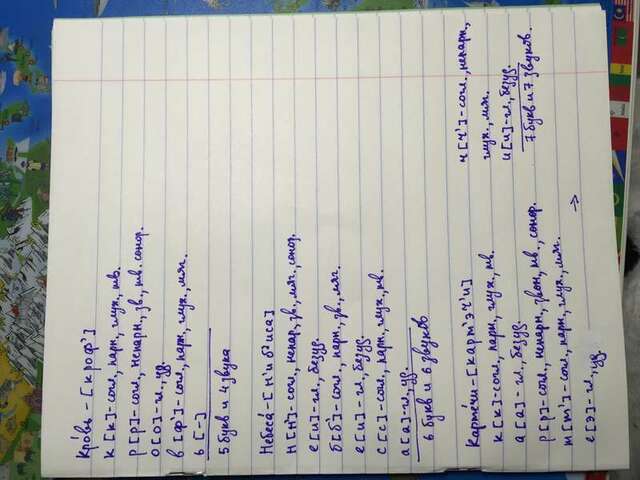 Кровь - [кроф']
к [к] - согл., парн., глух., тв.
р [р] - согл., непарн., зв., тв. сонор.
о [о] - гл., уд.
в [ф'] - согл., парн., глух., мяг.
ь [-]
5 букв и 4 звука
Небеса́ - [н'иб'иса]
н [н'] - согл., непар., зв., мяг., сонор.
е [и] - гл., безуд.
б [б'] - согл., парн., зв., мяг.
е [и] - гл., безуд.
с [с] - согл., парн., глух., тв.
а [а] - гл., уд.
6 букв и 6 звуков
Карте́чи - [карт'эч'и]
к [к] - согл., парн., глух., тв.
а [а] - гл., безуд.
р [р] - согл., непарн., звон., тв., сонор.
т [т'] - согл., парн., глух., мяг.
е [э] - гл., уд. →
ч [ч'] - согл., непарн.,
глух., мяг.
и [и] - гл., безуд.
7 букв и 7 звуков.